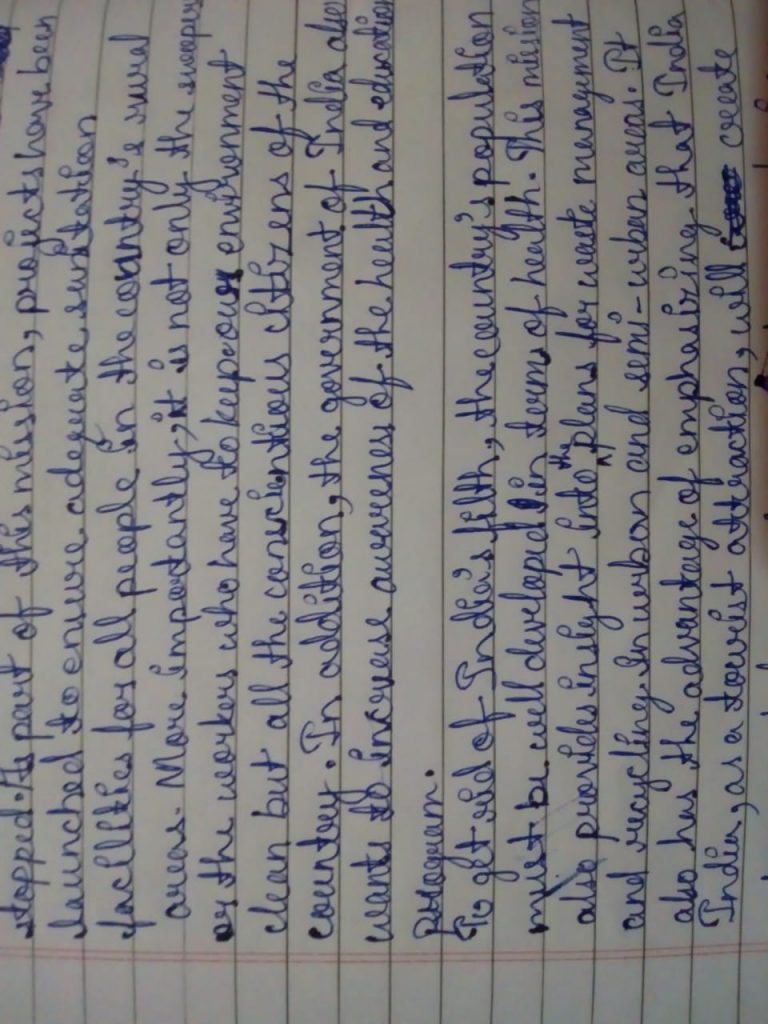 stopped. As part of this mission, projects have been
launched to ensure adequate sanitation
facilities for all people in the country's rural
areas. More importantly, it is not only the sweeper
or the workers who have to keep our environment
clean but all the conscientious citizens of the
country. In addition, the government of India also
wants to increase awareness of the health and education
program.
To get rid of India's filth, the country's population
must be well developed in terms of health. This mission
also provides insight into the plans for waste management
and recycling in urban and semi-urban areas. It
also has the advantage of emphasizing that India
India, as a tourist attraction, will create